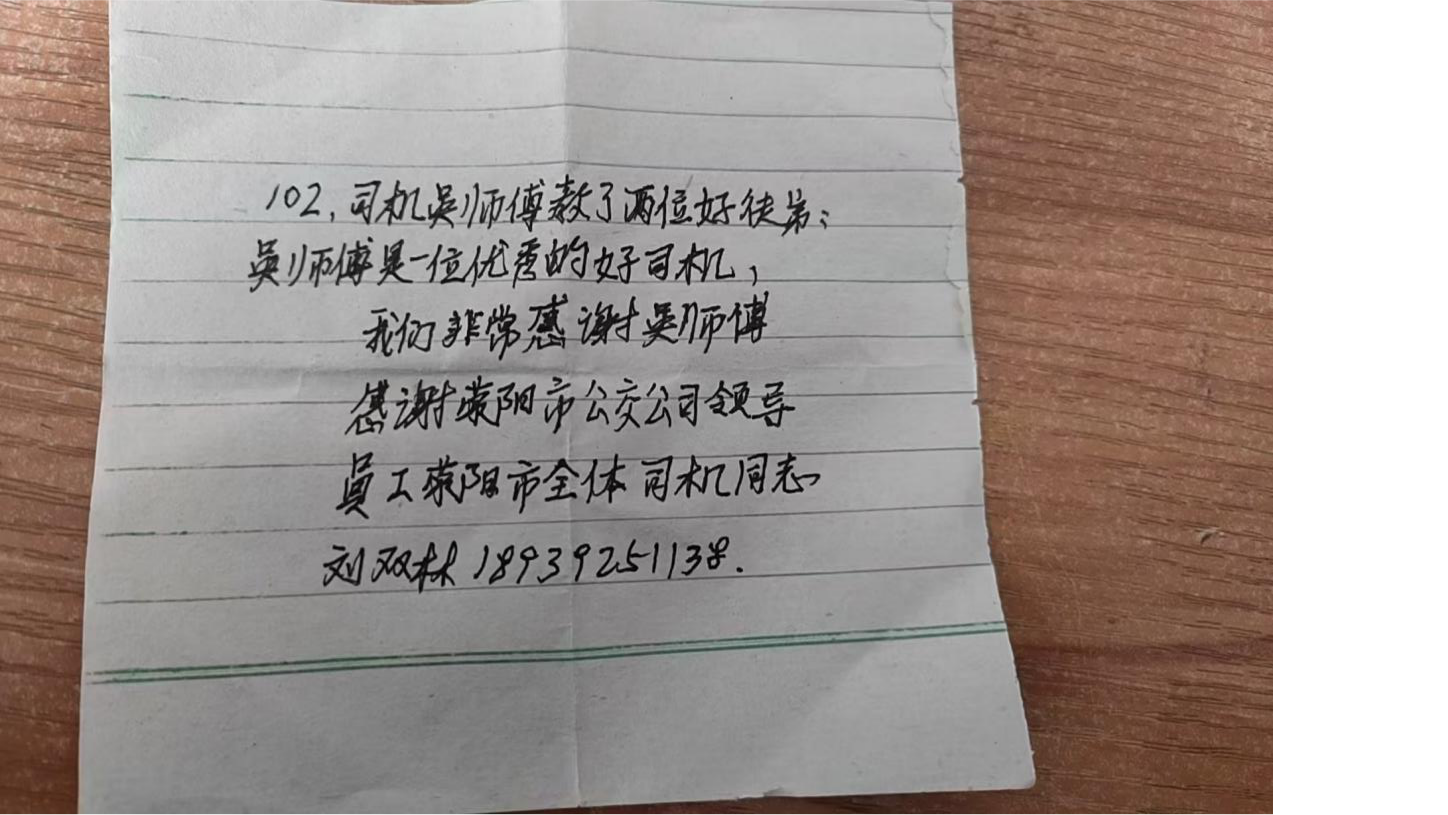 102,司机吴师傅教了两位好徒弟;
吴师傅是一位优秀的好司机,
我们非常感谢吴师傅
感谢荥阳市公交公司领导
员工荥阳市全体司机同志
刘双林 18939251138.